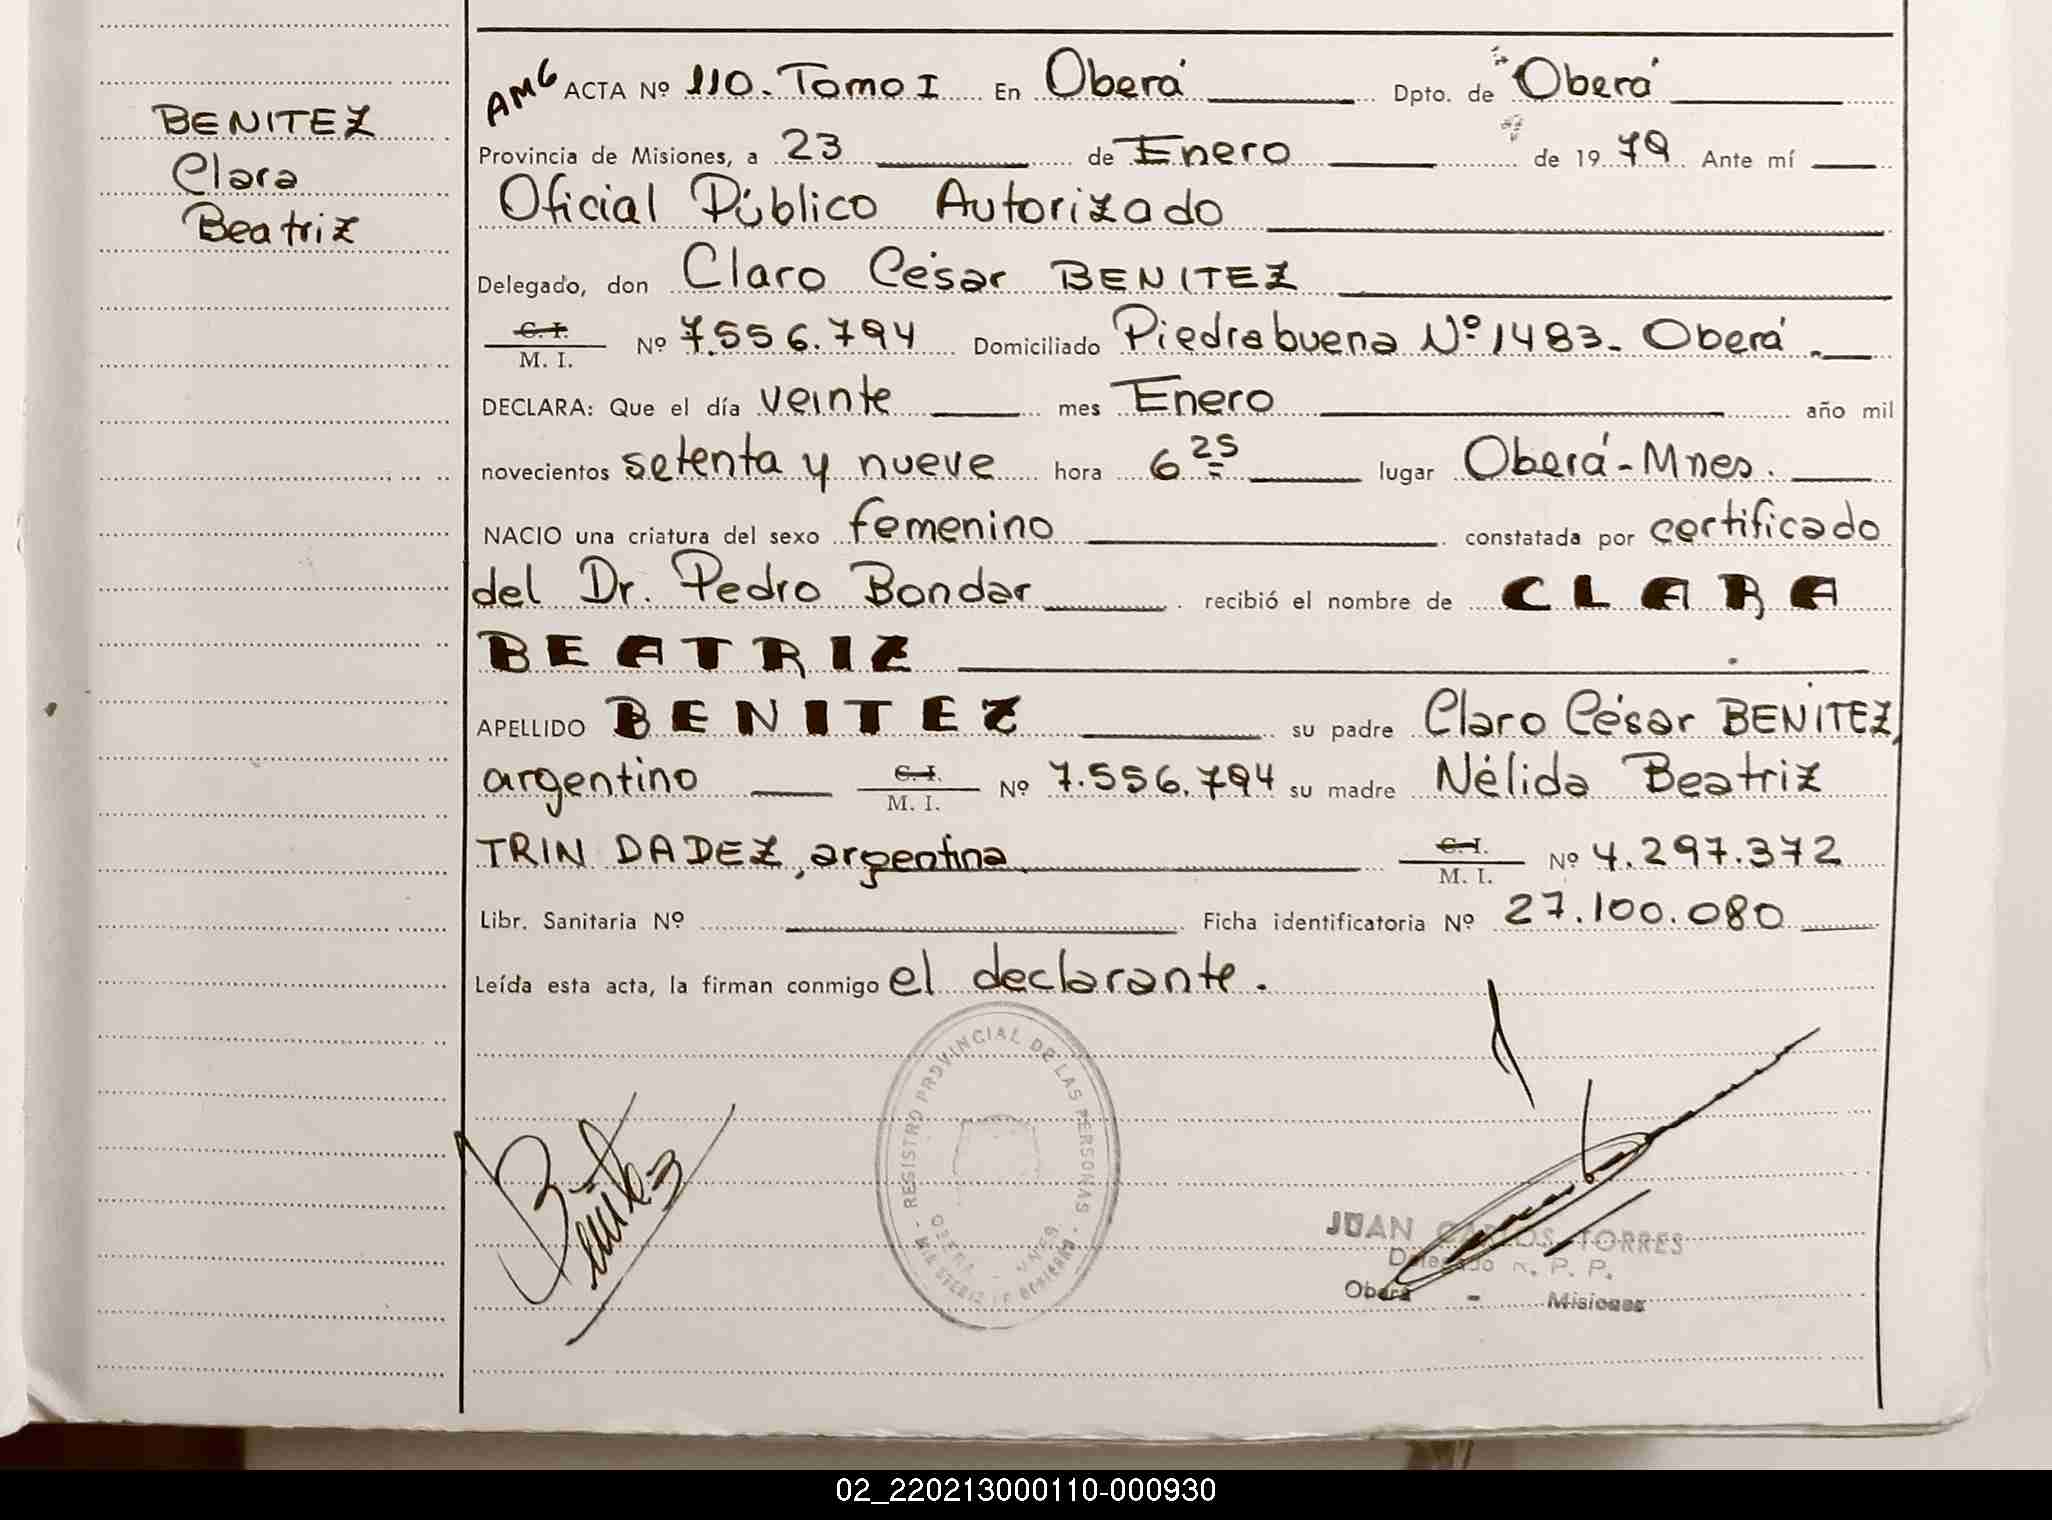 BENITEZ
Clara
Beatriz
AMG ACTA Nº 110. Tomo I En Oberá Dpto. de Oberá
Provincia de Misiones, a 23 de Enero de 1979 Ante mí
Oficial Público Autorizado
Delegado, don Claro César BENITEZ
C. I. / M. I. Nº 7.556.794 Domiciliado Piedrabuena Nº 1483- Oberá.
DECLARA: Que el día veinte mes Enero año mil
novecientos setenta y nueve hora 6 25 lugar Oberá-Mnes.
NACIO una criatura del sexo femenino constatada por certificado
del Dr. Pedro Bondar recibió el nombre de CLARA
BEATRIZ
APELLIDO BENITEZ su padre Claro César BENITEZ,
argentino C. I. / M. I. Nº 7.556.794 su madre Nélida Beatriz
TRINDADEZ, argentina C. I. / M. I. Nº 4.297.372
Libr. Sanitaria Nº Ficha identificatoria Nº 27.100.080
Leída esta acta, la firman conmigo el declarante.
REGISTRO PROVINCIAL DE LAS PERSONAS
OBERA - MNES
Benitez
JUAN CARLOS TORRES
Delegado R. P. P.
Oberá - Misiones
02_220213000110-000930